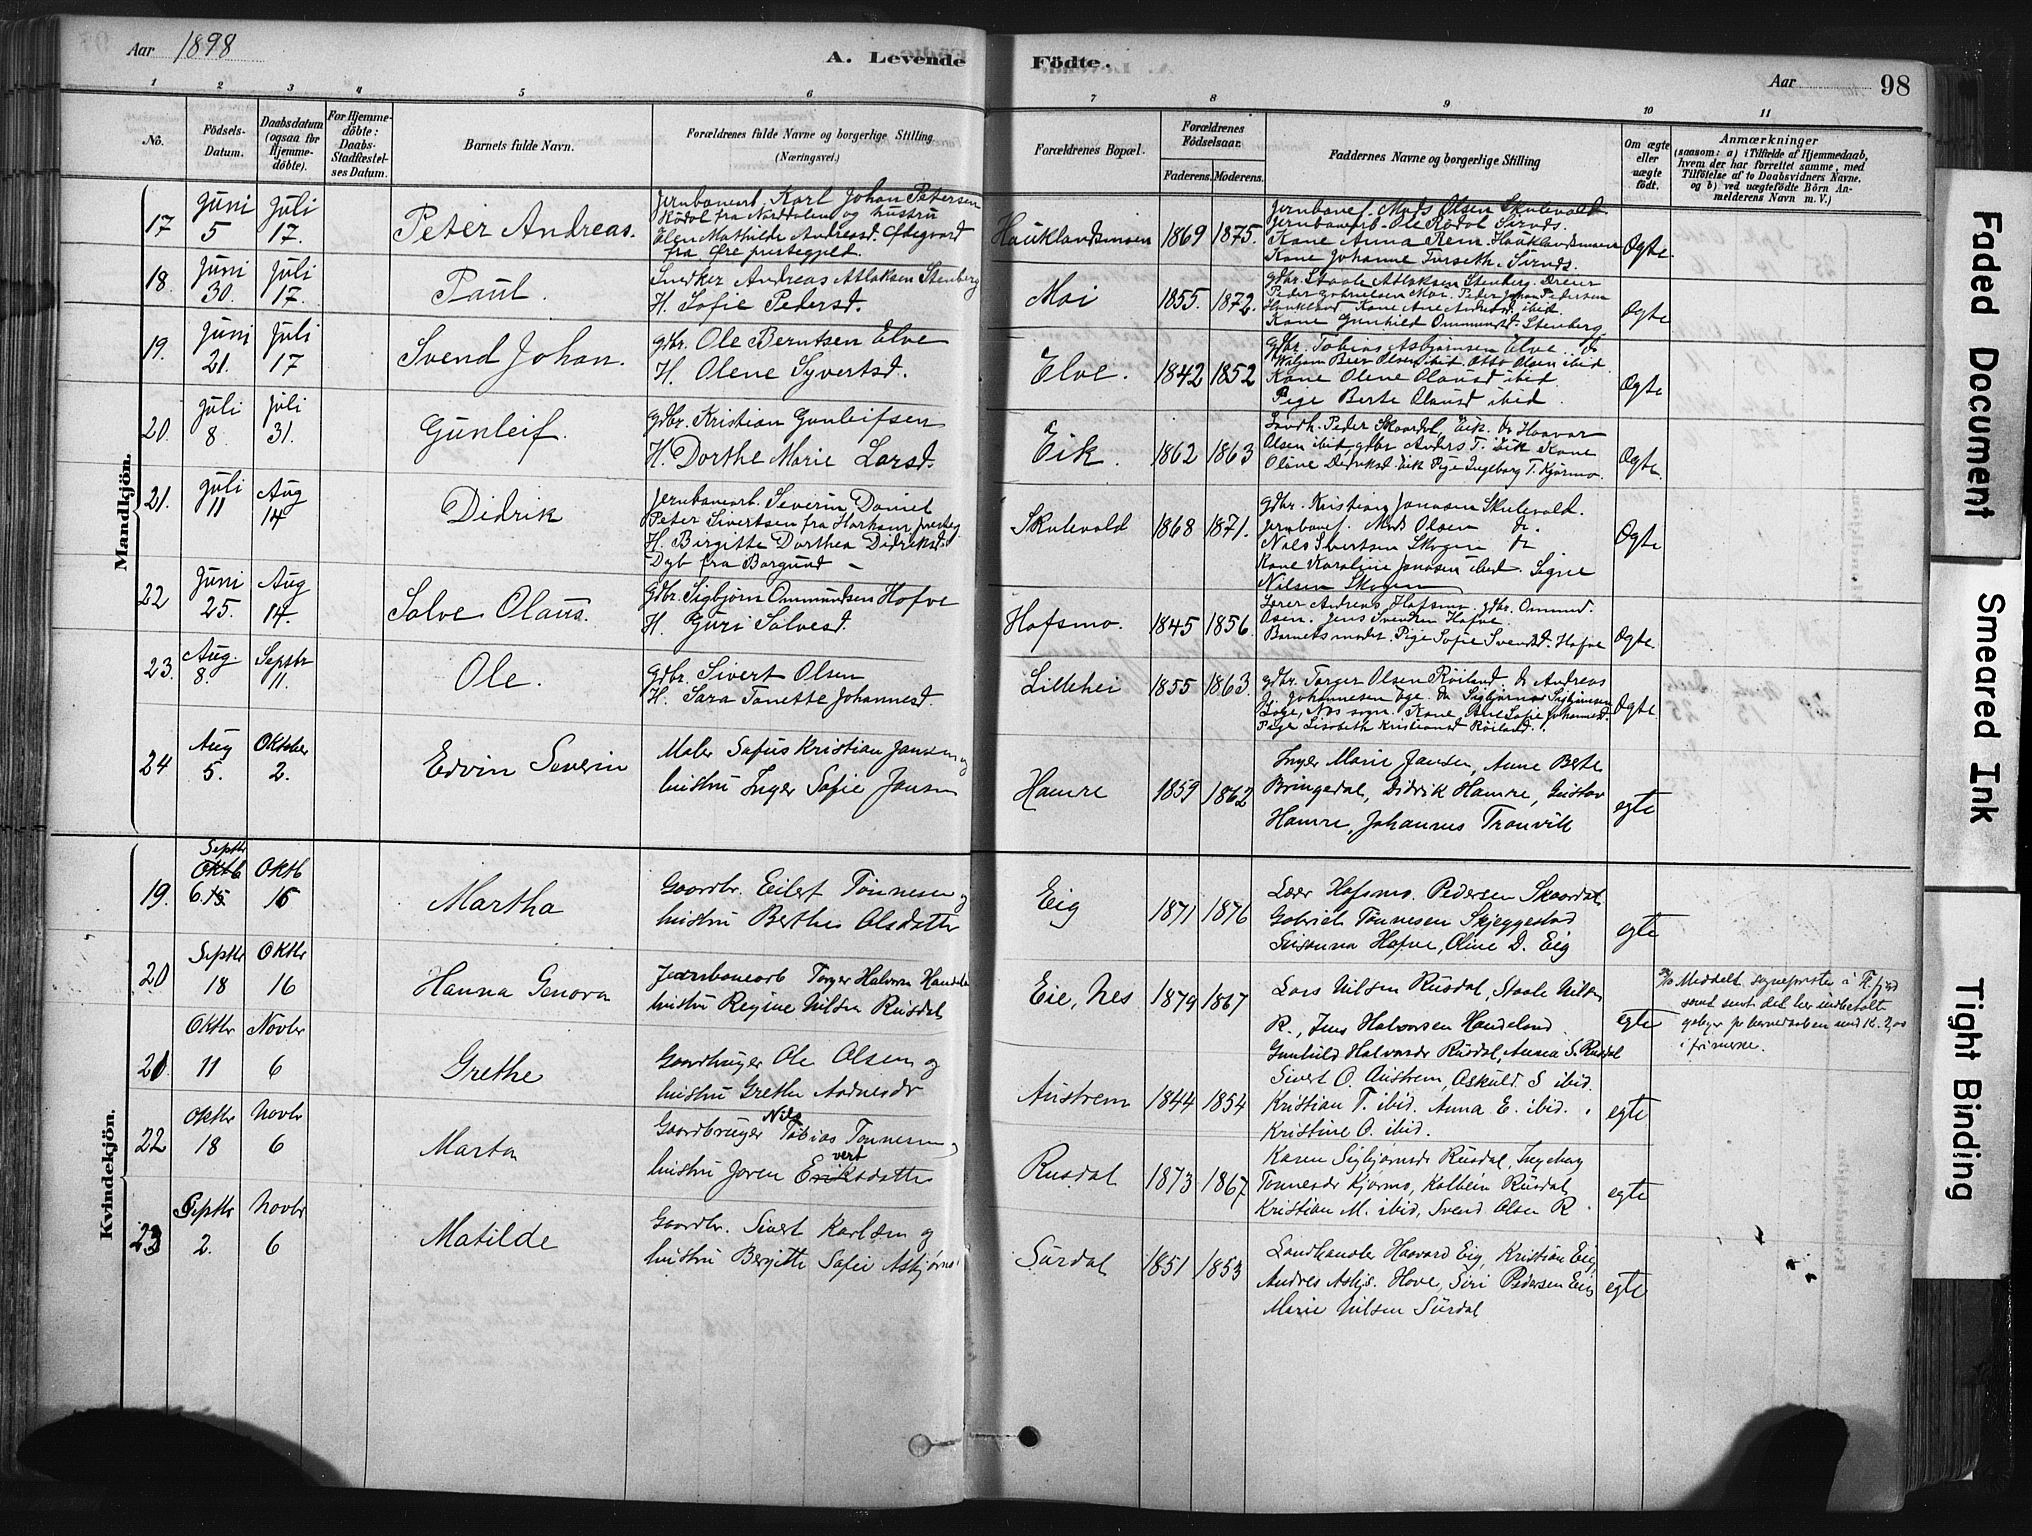 Aar 1898
A. Levende Födte.
Aar 98
1 2 3 4 5 6 7 8 9 10 11
No.
Födsels-Datum.
Daabsdatum (ogsaa for Hjemme-döbte).
For Hjemme-döbte: Daabs-Stadfæstel-ses Datum.
Barnets fulde Navn.
Forældrenes fulde Navne og borgerlige Stilling (Næringsvei.)
Forældrenes Bopæl.
Forældrenes Födselsaar.
Faderens. Moderens.
Faddernes Navne og borgerlige Stilling
Om ægte eller uægte født.
Anmærkninger
(saasom: a) i Tilfælde af Hjemmedaab, hvem der har forrettet samme, med Tilföielse af to Daabsvidners Navne, og b) ved uægtefödte Börn An-melderens Navn m. V.)
Mandkjön.
17 Juni 5 Juli 17. Peter Andreas.
Jernbanearb. Karl Johan Petersen
Rödal fra Norddalen og hustru
Elen Mathilde Andreasd. Ödegaard
fra Øre prestegjeld.
Hauklandsmoen 1869 1875.
Jernbanef. Mads Olsen Skulevold
Jernbanearb. Ole Rödal Sirnds.
Kone Anna Rem Hauklandsmoen
Kone Johanne Furseth Sirnds.
Ægte.
18. Juni 30. Juli 17. Paul.
Snedker Andreas Atlaksen Stenberg
H. Sofie Pedersd.
Moi 1855. 1872.
gdbr. Staale Atlaksen Stenberg. Dreier
Peder Gabrielsen Moi. Peder Johan Pedersen
Haukland Kone Ane Andreasd. ibid.
Kone Gunhild Ommundsd. Stenberg
Ægte
19. Juni 21. Juli 17 Svend Johan.
gdbr. Ole Berntsen Elve
H. Olene Syvertsd.
Elve. 1842 1852
gdbr. Tobias Asbjørnsen Elve
Olsen ibid Otto Olsen ibid.
Kone Olene Olausd ibid.
Pige Berte Olausd ibid.
Ægte
20. Juli 8. Juli 31. Gunleif.
gdbr. Kristian Gunleifsen
H. Dorthe Marie Larsd.
Eik. 1862 1863
Landh. Peder Skaardal, Eik. do Haavar
Olsen ibid gdbr Anders T. Eik Kone
Oline Didriksd. Eik Pige Ingeborg T. Kjørmo.
Ægte.
21. Juli 11 Aug 14 Didrik
Jernbanearb. Severin Daniel
Peter Sivertsen fra Harham presteg
H. Birgitte Dorthea Didriksd.
Dyb fra Borgund –
Skulevold 1868 1871.
gdbr. Kristian Jonassen Skulevold.
Jernbanef. Mads Olsen do.
Nils Sivertsen Skogen do
Kone Karoline Jonassen ibid. Signe
Nilsen Skogen
Ægte
22 Juni 25. Aug 14. Salve Olaus.
Gdbr. Sigbjørn Ommundsen Hofve
H. Guri Salvesd.
Hofsmo. 1845 1856.
Lærer Andreas Hofsmo, gdbr. Ommund.
Osen. Jens Svendsen Hofve.
Barnets moder. Pige Sofie Svendsd. Hofve
Ægte
23. Aug. 8. Septbr 11. Ole.
gdbr. Sivert Olsen
H. Sara Tonette Johannesd.
Lillehei 1855 1863.
gdbr. Torger Olsen Röiland. do Andreas
Johannesen Ege. do Sigbjørn Sigbjørnsen
Loge, Nes sogn. Kone Ane Sofie Johannesd.
Pige Lisabeth Kristiansd Röiland.
Ægte
24 Aug 5. Oktober 2. Edvin Severin
Maler Sofus Kristian Jansen og
hustru Inger Sofie Jansen
Hamre 1859 1862
Inger Marie Jansen, Anne Berte
Bringedal, Didrik Hamre, Gustav
Hamre, Johannes Tranvik
egte
Kvindekjön.
19. Septbr Oktb 6. 15 Oktb 16 Martha
Gaardbr. Eilert Tønnesen og
hustru Berthe Olsdatter
Eig 1871 1876
Lærer Hofsmo. Pedersen Skaardal
Gabriel Tønnesen Skjeggestad
Susanna Hofve, Oline D. Eig
egte
20 Septbr 18 Oktbr 16 Hanna Genova
Jernbanearb Torger Halvorsen Handeland
hustru Regine Nilsen Rusdal
Eie, Nes 1879 1867
Lars Nilsen Rusdal, Staale Nilsen
R., Jens Halvorsen Handeland
Gunhild Halvorsdr Rusdal, Anna S. Rusdal
egte
Meddelt sogneprsten i Fl.fjord
samt sendt det her indbetalte
gebyr for barnedaaben med K. 2,00
i frimerke.
21 Oktbr 11 Novbr 6 Grethe
Gaardbruger Ole Olsen og
hustru Grethe Aadnesdr
Austrem 1844 1854
Sivert O. Austrem, Askuld. S ibid.
Kristian T. ibid. Anna E. ibid.
Kristine O. ibid.
egte
22 Oktbr 18 Novbr 6 Marta
Gaardbruger Nils Tobias Tønnesen og
hustru Joren Eriksdatter vert
Rusdal 1873 1867
Karen Sigbjørnsdr Rusdal, Ingeborg
Tønnesdr Kjørmo, Kolbein Rusdal
Kristian M. ibid, Svend Olsen R.
egte
23 Septbr 2. Novbr 6 Matilde
Gaardbr. Sivert Karlsen og
hustru Bergitte Sofie Asbjørns
Surdal 1851 1853
Landhandler Haavard Eig, Kristian Eig,
Andreas Asbjs. Hove, Siri Pedersen Eig
Marie Nilsen Surdal
egte
Faded Document
Smeared Ink
Tight Binding